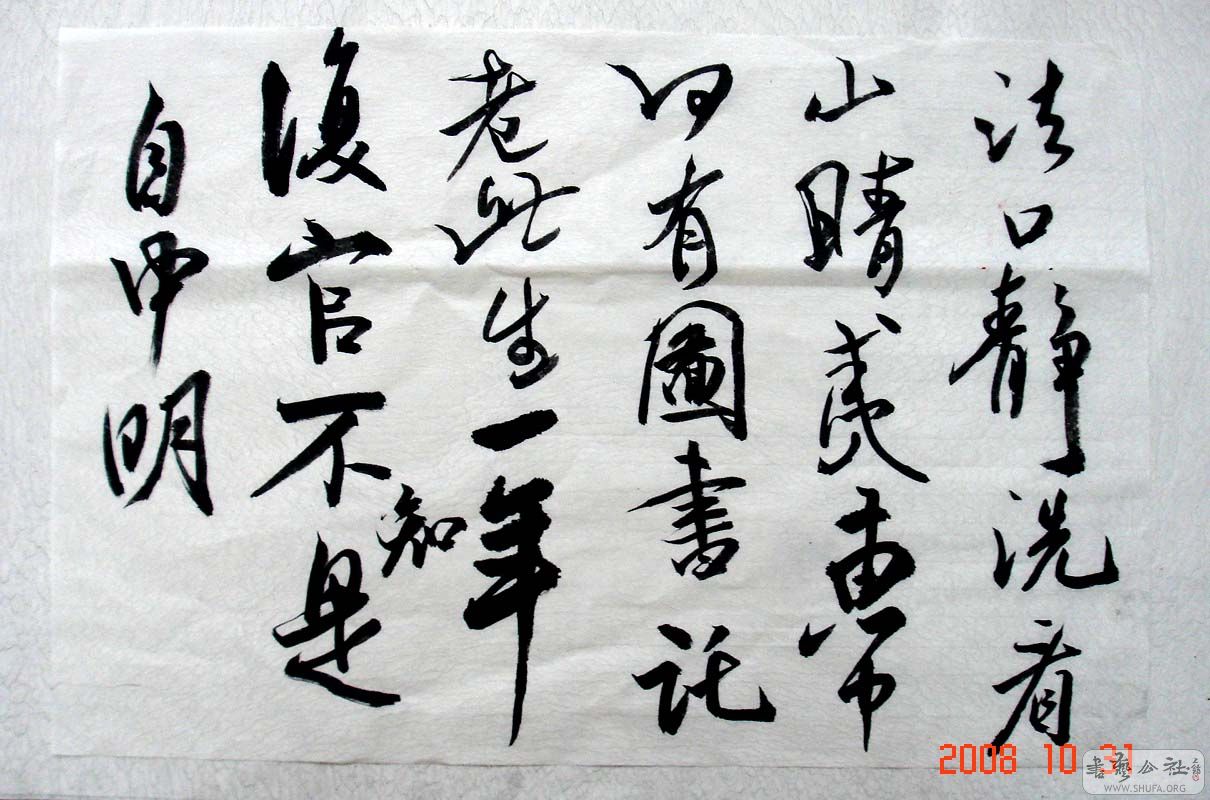 法口静洗看
山晴帶
有圖書託
老此生一年
復官不知是
自申明
2008 10 31
書藝公社
WWW.SHUFA.ORG